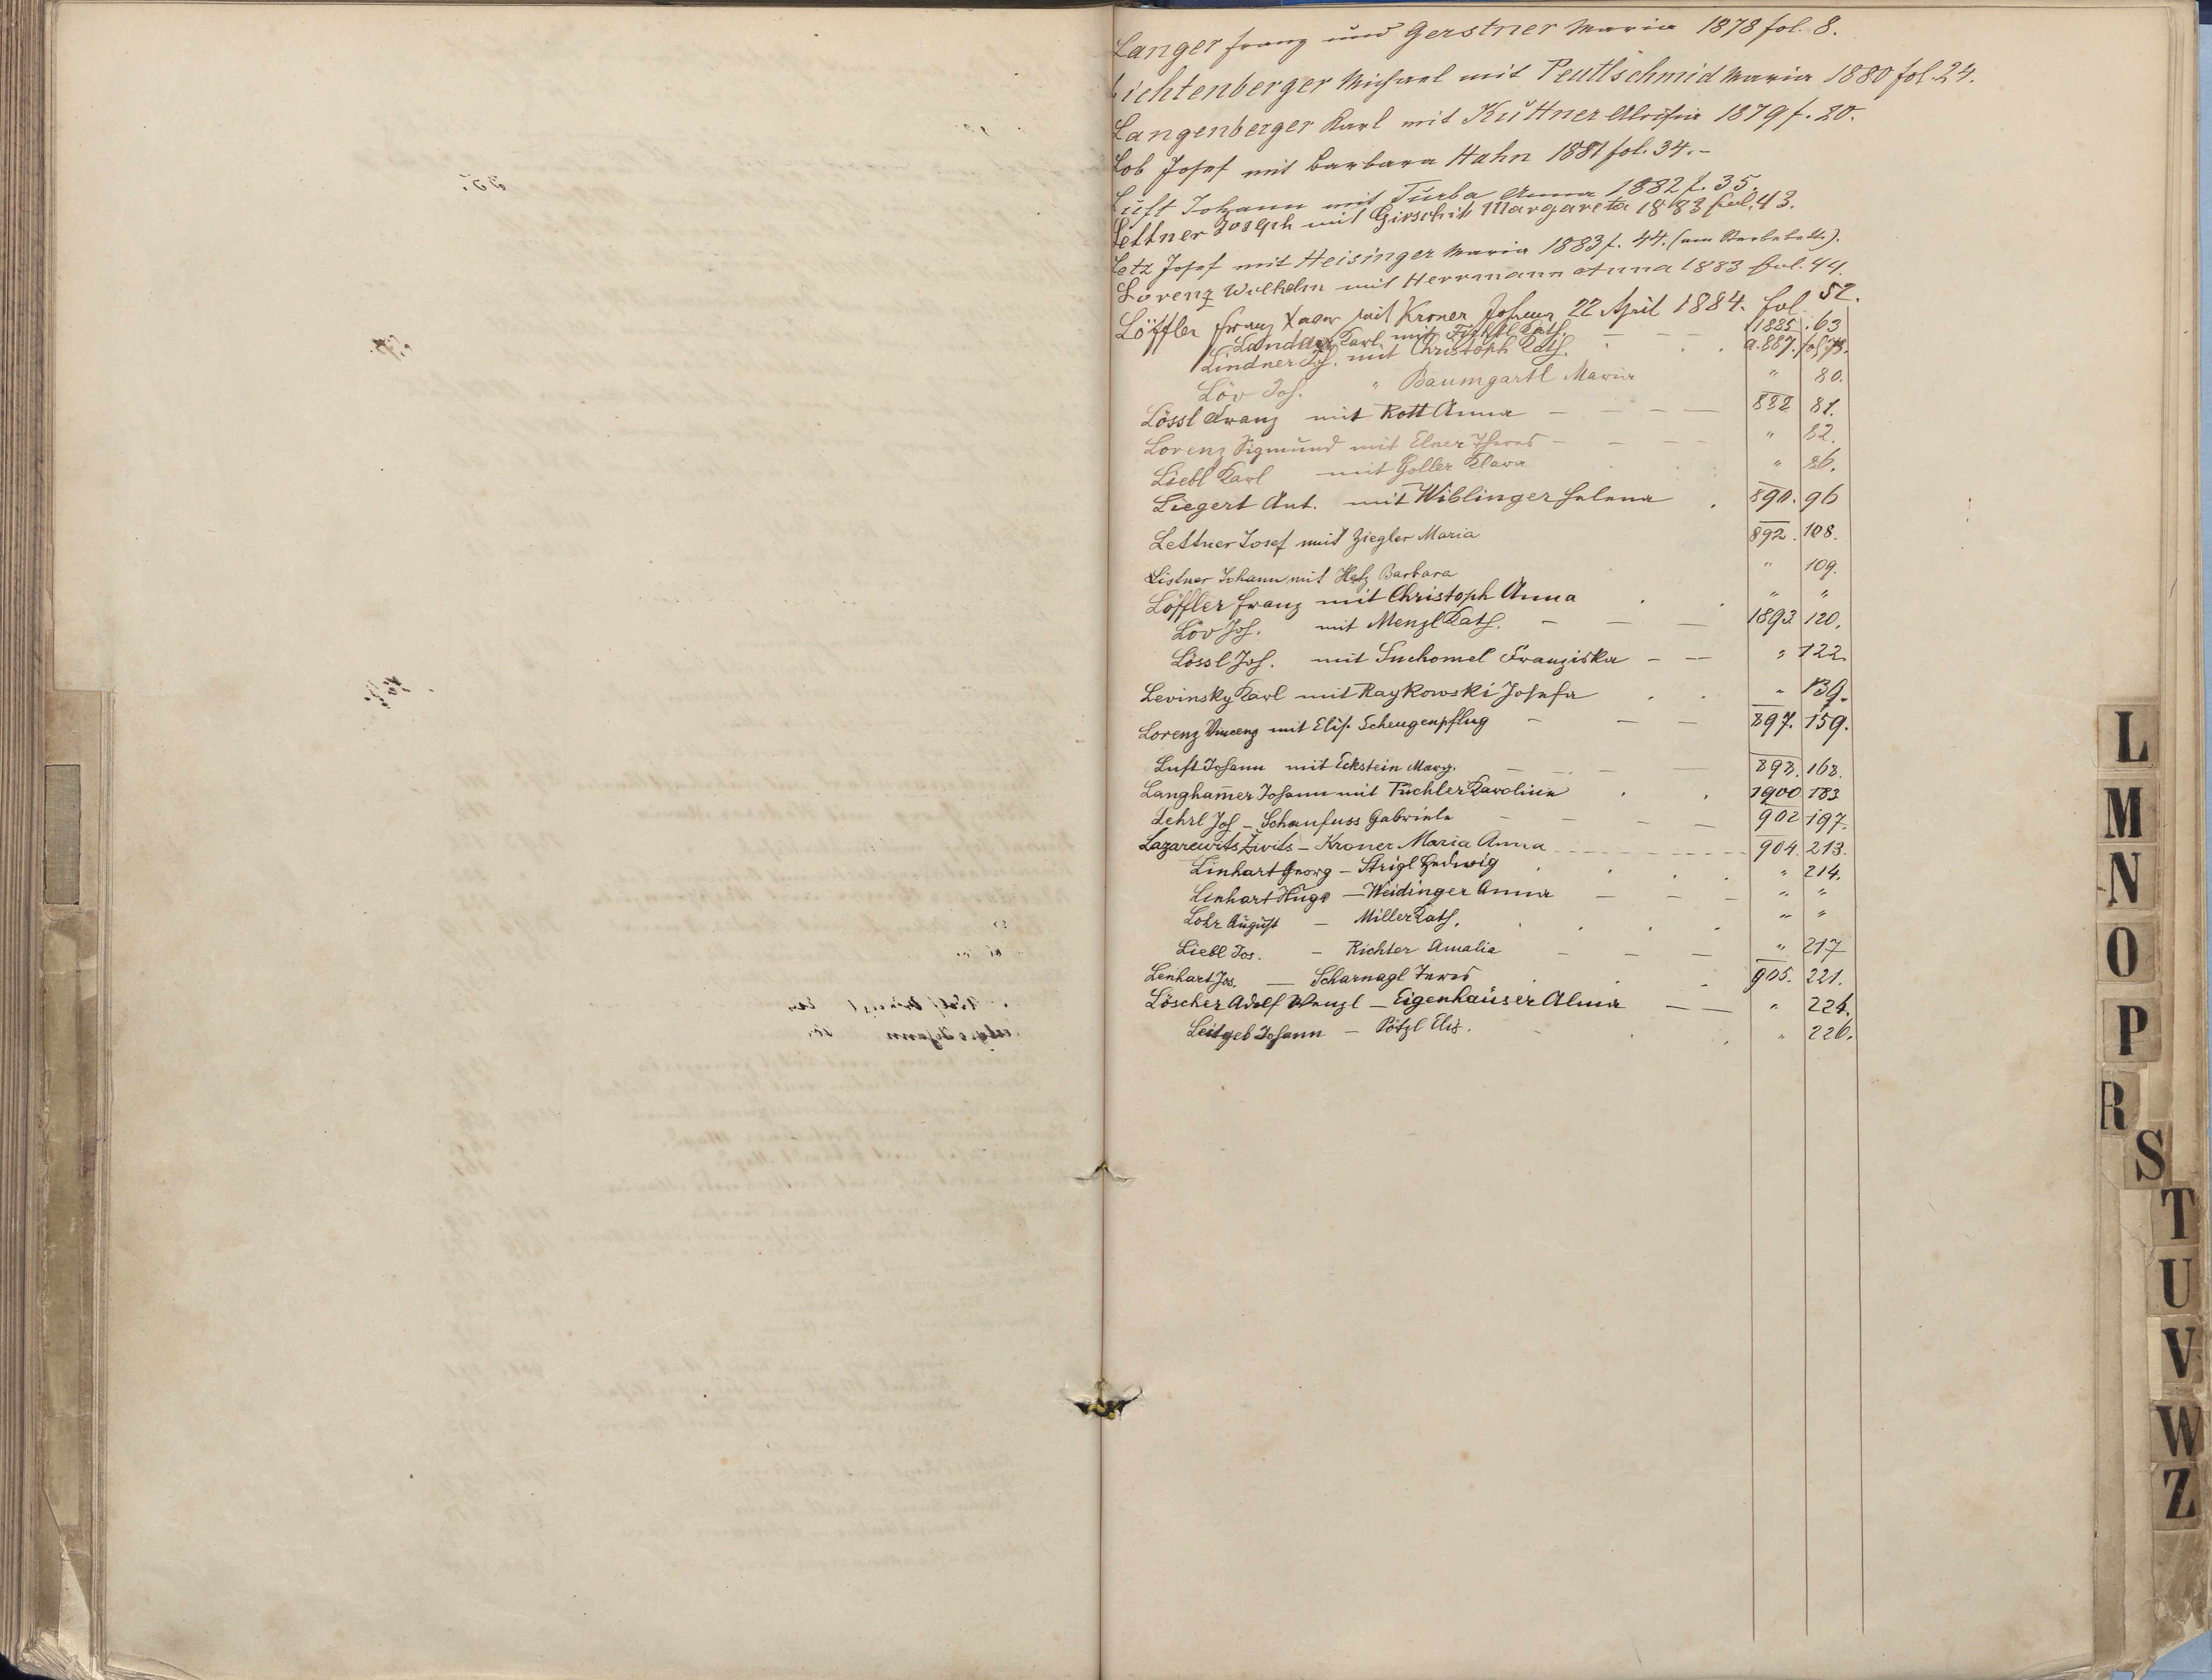 Langer Franz und Gerstner Maria 1878 fol. 8.
Lichtenberger Michael mit Peutlschmid Maria 1880 fol. 24.
Langenberger Karl mit Kuttner Aloisia 1879 f. 20.
Lob Josef mit Barbara Hahn 1881 fol. 34. -
Luft Johann mit Turba Anna 1882 f. 35.
Lettner Joseph mit Girschik Margareta 1883 fol. 43.
Letz Josef mit Heisinger Maria 1883 f. 44. (am Sterbebette).
Lorenz Wilhelm mit Herrmann Anna 1883 fol. 44.
Löffler Franz Xaver mit Kroner Johanna 22 April 1884. fol 52.
Karl mit Kath. - - - 1885. 63
Lindner Jos. mit Christoph Kath. 887. fol.
Löv Jos. " Baumgartl Maria " 80.
Lössl Franz mit Rott Anna - - - 81.
Lorenz Sigmund mit Elner Theres - - - " 82.
Liebl Karl mit Goller Klara " 86.
Liegert Ant. mit Wiblinger Helena 890. 96
Lettner Josef mit Ziegler Maria 892. 108.
Listner Johann mit Hetz Barbara " 109.
Löffler Franz mit Christoph Anna " "
Löv Jos. mit Menzl Kath. - - - 1893 120.
Lössl Jos. mit Suchomel Franziska - - " 122
Levinsky Karl mit Raykowski Josefa " 139.
Lorenz Vincenz mit Elis. Scheugenpflug - - - 897. 159.
Luft Johann mit Eckstein Marg. - - - 898. 168.
Langham̄er Johann mit Tüchler Karolina 1900 183
Lehrl Jos - Schaufuss Gabriele - - - - 902 197.
Lazarewits Živits - Kroner Maria Anna - - - 904. 213.
Linhart Georg - Strigl Hedwig " 214.
Linhart Hugo - Weidinger Anna - - - " "
Lohr August - Miller Kath. " "
Liebl Jos. - Richter Amalia - - - " 217
Lenhart Jos. - Scharnagl Theres 905. 221.
Löscher Adolf Wenzl - Eigenhäuser Alma - - " 224.
Leitgeb Johann - Pötzl Elis. " 226.
L
M
N
O
P
R
S
T
U
V
W
Z